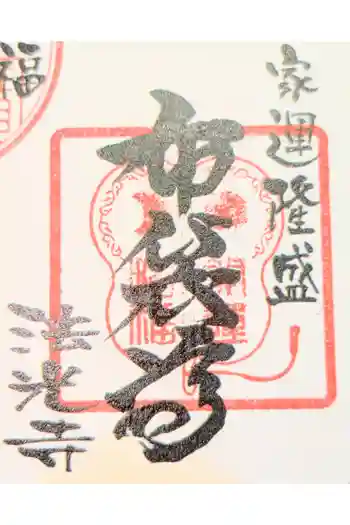 家運隆盛
布袋尊
法光寺
福